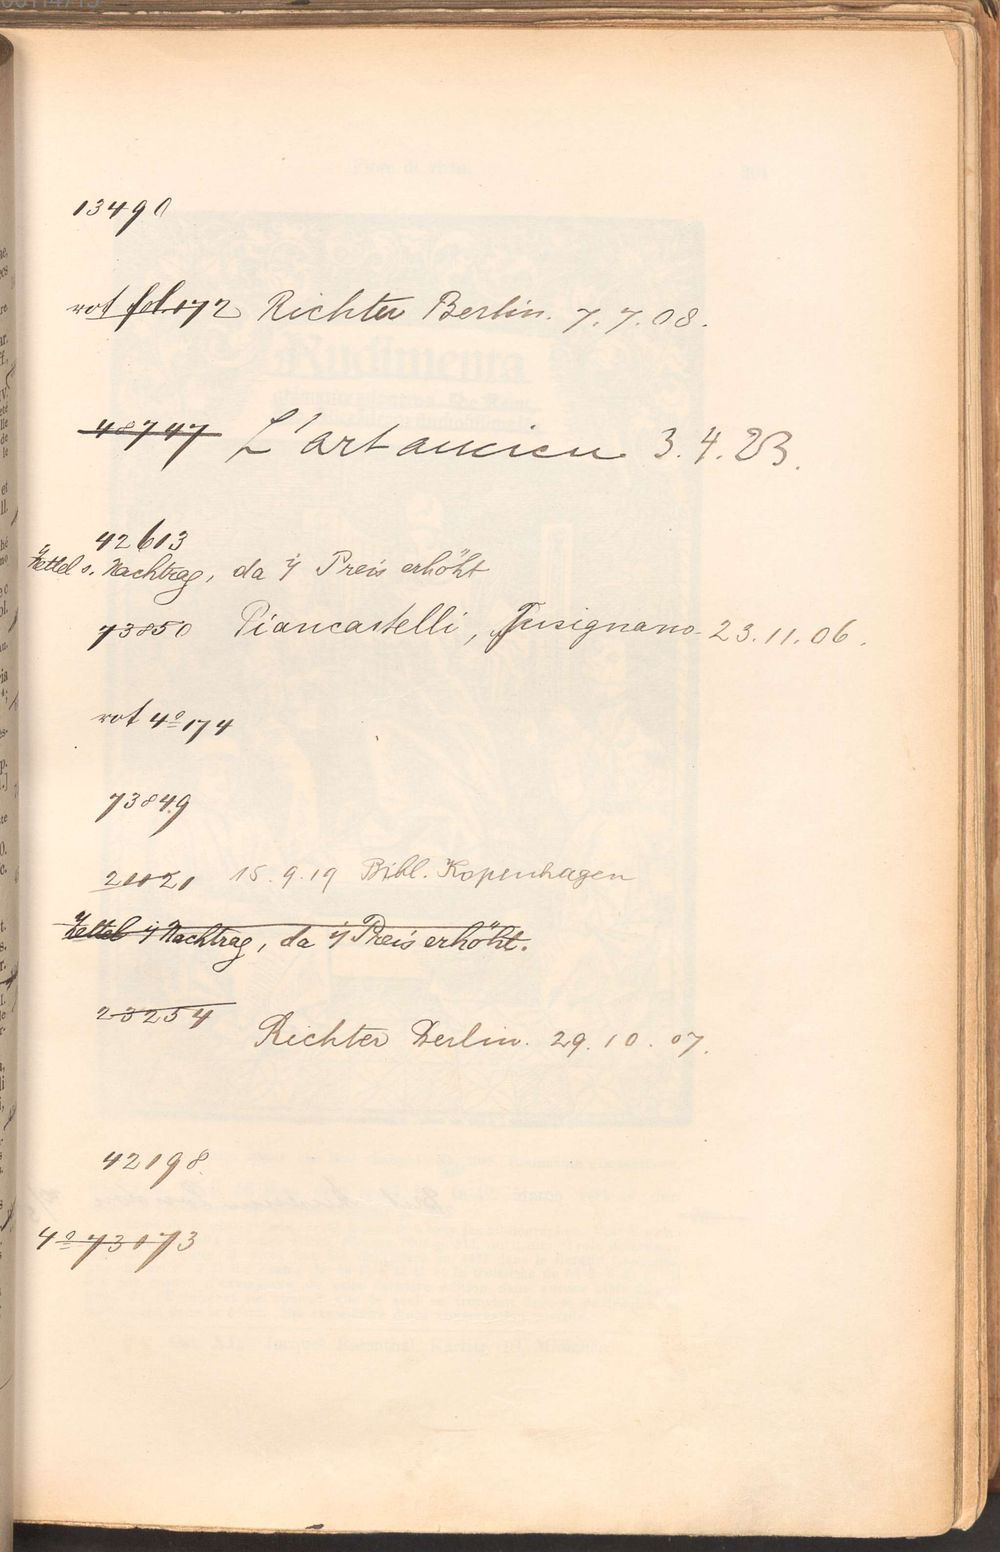 13490
rot fol. 172 Richter Berlin. 7. 7. 08.
48747 L'art ancien 3. 4. 23.
42613
Zettel s. Nachtrag, da Preis erhöht
73850 Piancastelli, Fusignano 23. 11. 06.
rot 4º 174
73849
21021 15. 9. 19 Bibl. Kopenhagen
Zettel Nachtrag, da Preis erhöht.
23254
Richter Berlin. 29. 10. 07.
42198
4º 73073